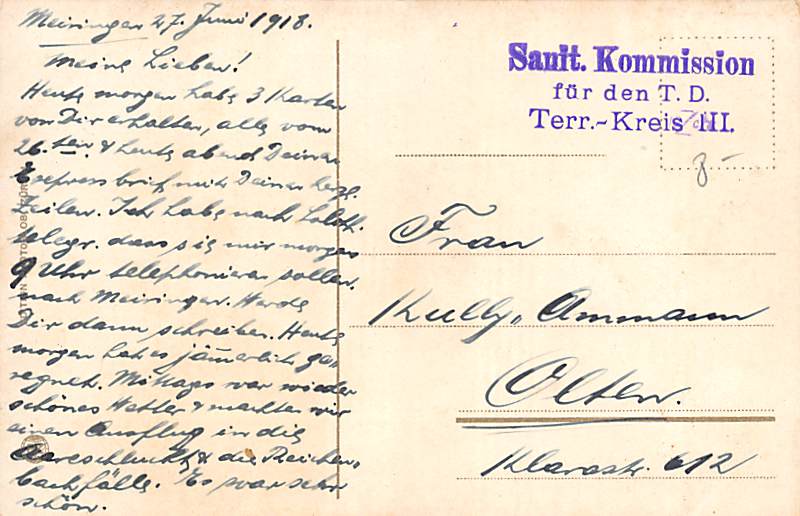 Meiringen 27. Juni 1918.
Meine Lieben!
Heute morgen habe 3 Karten
von Dir erhalten, alle vom
26.ten & heute abend Deinen
Expressbrief mit Deinen herzl.
Zeilen. Ich habe nach
telegr. dass sie mir morgen
9 Uhr telephonieren sollen.
nach Meiringen. Werde
Dir dann schreiben. Heute
morgen hat es jämerlich ge„
regnet. Mittags war wieder
schönes Wetter & machten wir
einen Ausflug in die
Aareschlucht & die Reichen„
bachfälle. Es war sehr
schön.
Sanit. Kommission
für den T. D.
Terr.-Kreis III.
8 –
Frau
Kully„ Ammann
Olten.
Klarastr. 612